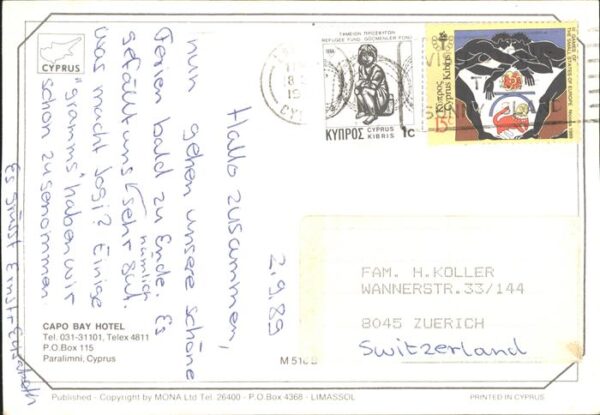 CYPRUS
2.9.89
Hallo zusammen,
nun gehen unsere schöne
Ferien bald zu Ende. Es
gefällt uns nämlich sehr gut.
was macht Jogi? Einige
"gramms" haben wir
schon zugenommen
Es grüsst Ernst +
CAPO BAY HOTEL
Tel. 031-31101, Telex 4811
P.O.Box 115
Paralimni, Cyprus
ΤΑΜΕΙΟΝ ΠΡΟΣΦΥΓΩΝ
REFUGEE FUND GÖÇMENLER FONU
1984
ΚΥΠΡΟΣ
CYPRUS
KIBRIS
1c
Κύπρος
Cyprus Kıbrıs
15c
THE SMALL STATES OF EUROPE
FAM. H.KOLLER
WANNERSTR.33/144
8045 ZUERICH
Switzerland
Published - Copyright by MONA Ltd Tel. 26400 - P.O.Box 4368 - LIMASSOL
PRINTED IN CYPRUS